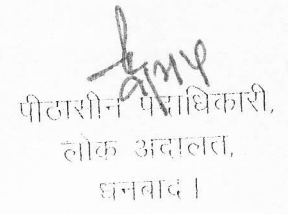 पीठासीन पदाधिकारी,
लोक अदालत,
धनबाद।